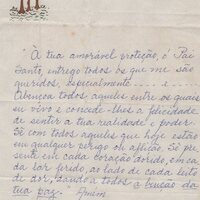 "À tua amorável proteção, ó Pai
Santo, entrego todos os que me são
queridos, especialmente ...... e ......
Abençoa todos aqueles entre os quais
eu vivo e concede-lhes a felicidade
de sentir a tua realidade e poder.
Sê com todos aqueles que hoje estão
em qualquer perigo ou aflição. Sê pre
sente em cada coração dorido, em ca
da lar ferido, ao lado de cada leito
de dor, dando a todos a benção da
tua paz. Amém